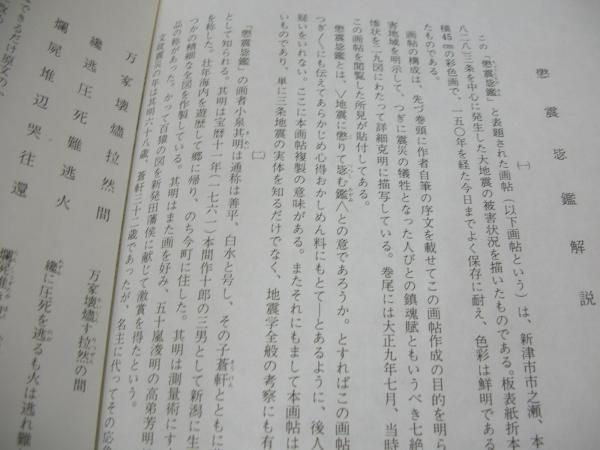 懲震毖鑑解説
(一)
この「懲震毖鑑」と表題された画帖（以下画帖という）は、新津市市之瀬、本
八二八）三条を中心に発生した大地震の被害状況を描いたものである。板表紙折本
横45㎝の彩色画で、一五〇年を経た今日までよく保存に耐え、色彩は鮮明である
たものである。
画帖の構成は、先づ巻頭に作者自筆の序文を載せてこの画帖作成の目的を明ら
害地域を明示して、つぎに震災の犠牲となった人びとの鎮魂賦ともいうべき七絶
惨状を二九図にわたって詳細克明に描写している。巻尾には大正九年七月、当時
この画帖を閲覧した所見が貼付してある。
懲震毖鑑とは、＼地震に懲りて毖む鑑／との意であろうか。とすればこの画帖
つぎ〱にも伝えてあらかじめ心得おかしめん料にもとて―とあるように、後人
疑いをいれない。ここに本画帖複製の意味がある。またそれにもまして本画帖は
いものであり、単に三条地震の実体を知るだけでなく、地震学全般の考察にも有
(二)
『懲震毖鑑』の画者小泉其明は通称は善平、白水と号し、その子蒼軒とともに
として知られる。其明は宝暦十一年（一七六一）本間作十郎の三男として新潟に生
を称した。壮年海内を遊歴して郷に帰り、のち今町に住した。其明は測量術にす
つかの精細な全図を作製している。其明はまた画を好み、五十嵐浚明の高弟芳明
品の称があった。かつて百猿の図を新発田藩侯に献じて激賞を得たという。
文政震災の年は其明六十八歳、蒼軒三十二歳であったが、名主に代ってその応急
万家壊燼拉然間
纔逃圧死難逃火
爛屍堆辺哭往還
万家壊燼す拉然の間
纔に圧死を逃るも火は逃れ難
爛屍堆
できるだけ原文の